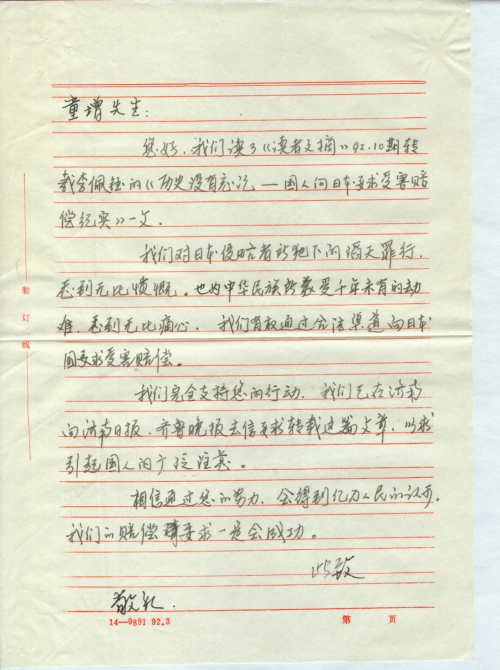 童增先生：
您好，我们读了《读者文摘》92.10期转
载李佩钰的《历史没有忘记 — 国人向日本要求受害赔
偿纪实》一文。
我们对日本侵略者所犯下的滔天罪行，
感到无比愤慨。也为中华民族所蒙受千年未有的劫
难，感到无比痛心。我们有权通过合法渠道向日本
国要求受害赔偿。
我们完全支持您的行动，我们已在济南
向济南日报、齐鲁晚报去信要求转载这篇文章，以求
引起国人的广泛注意。
相信通过您的努力，会得到亿万人民的认可。
我们的赔偿要求一定会成功。
此致
敬礼.
装订线
14—0891 92.3
第 页